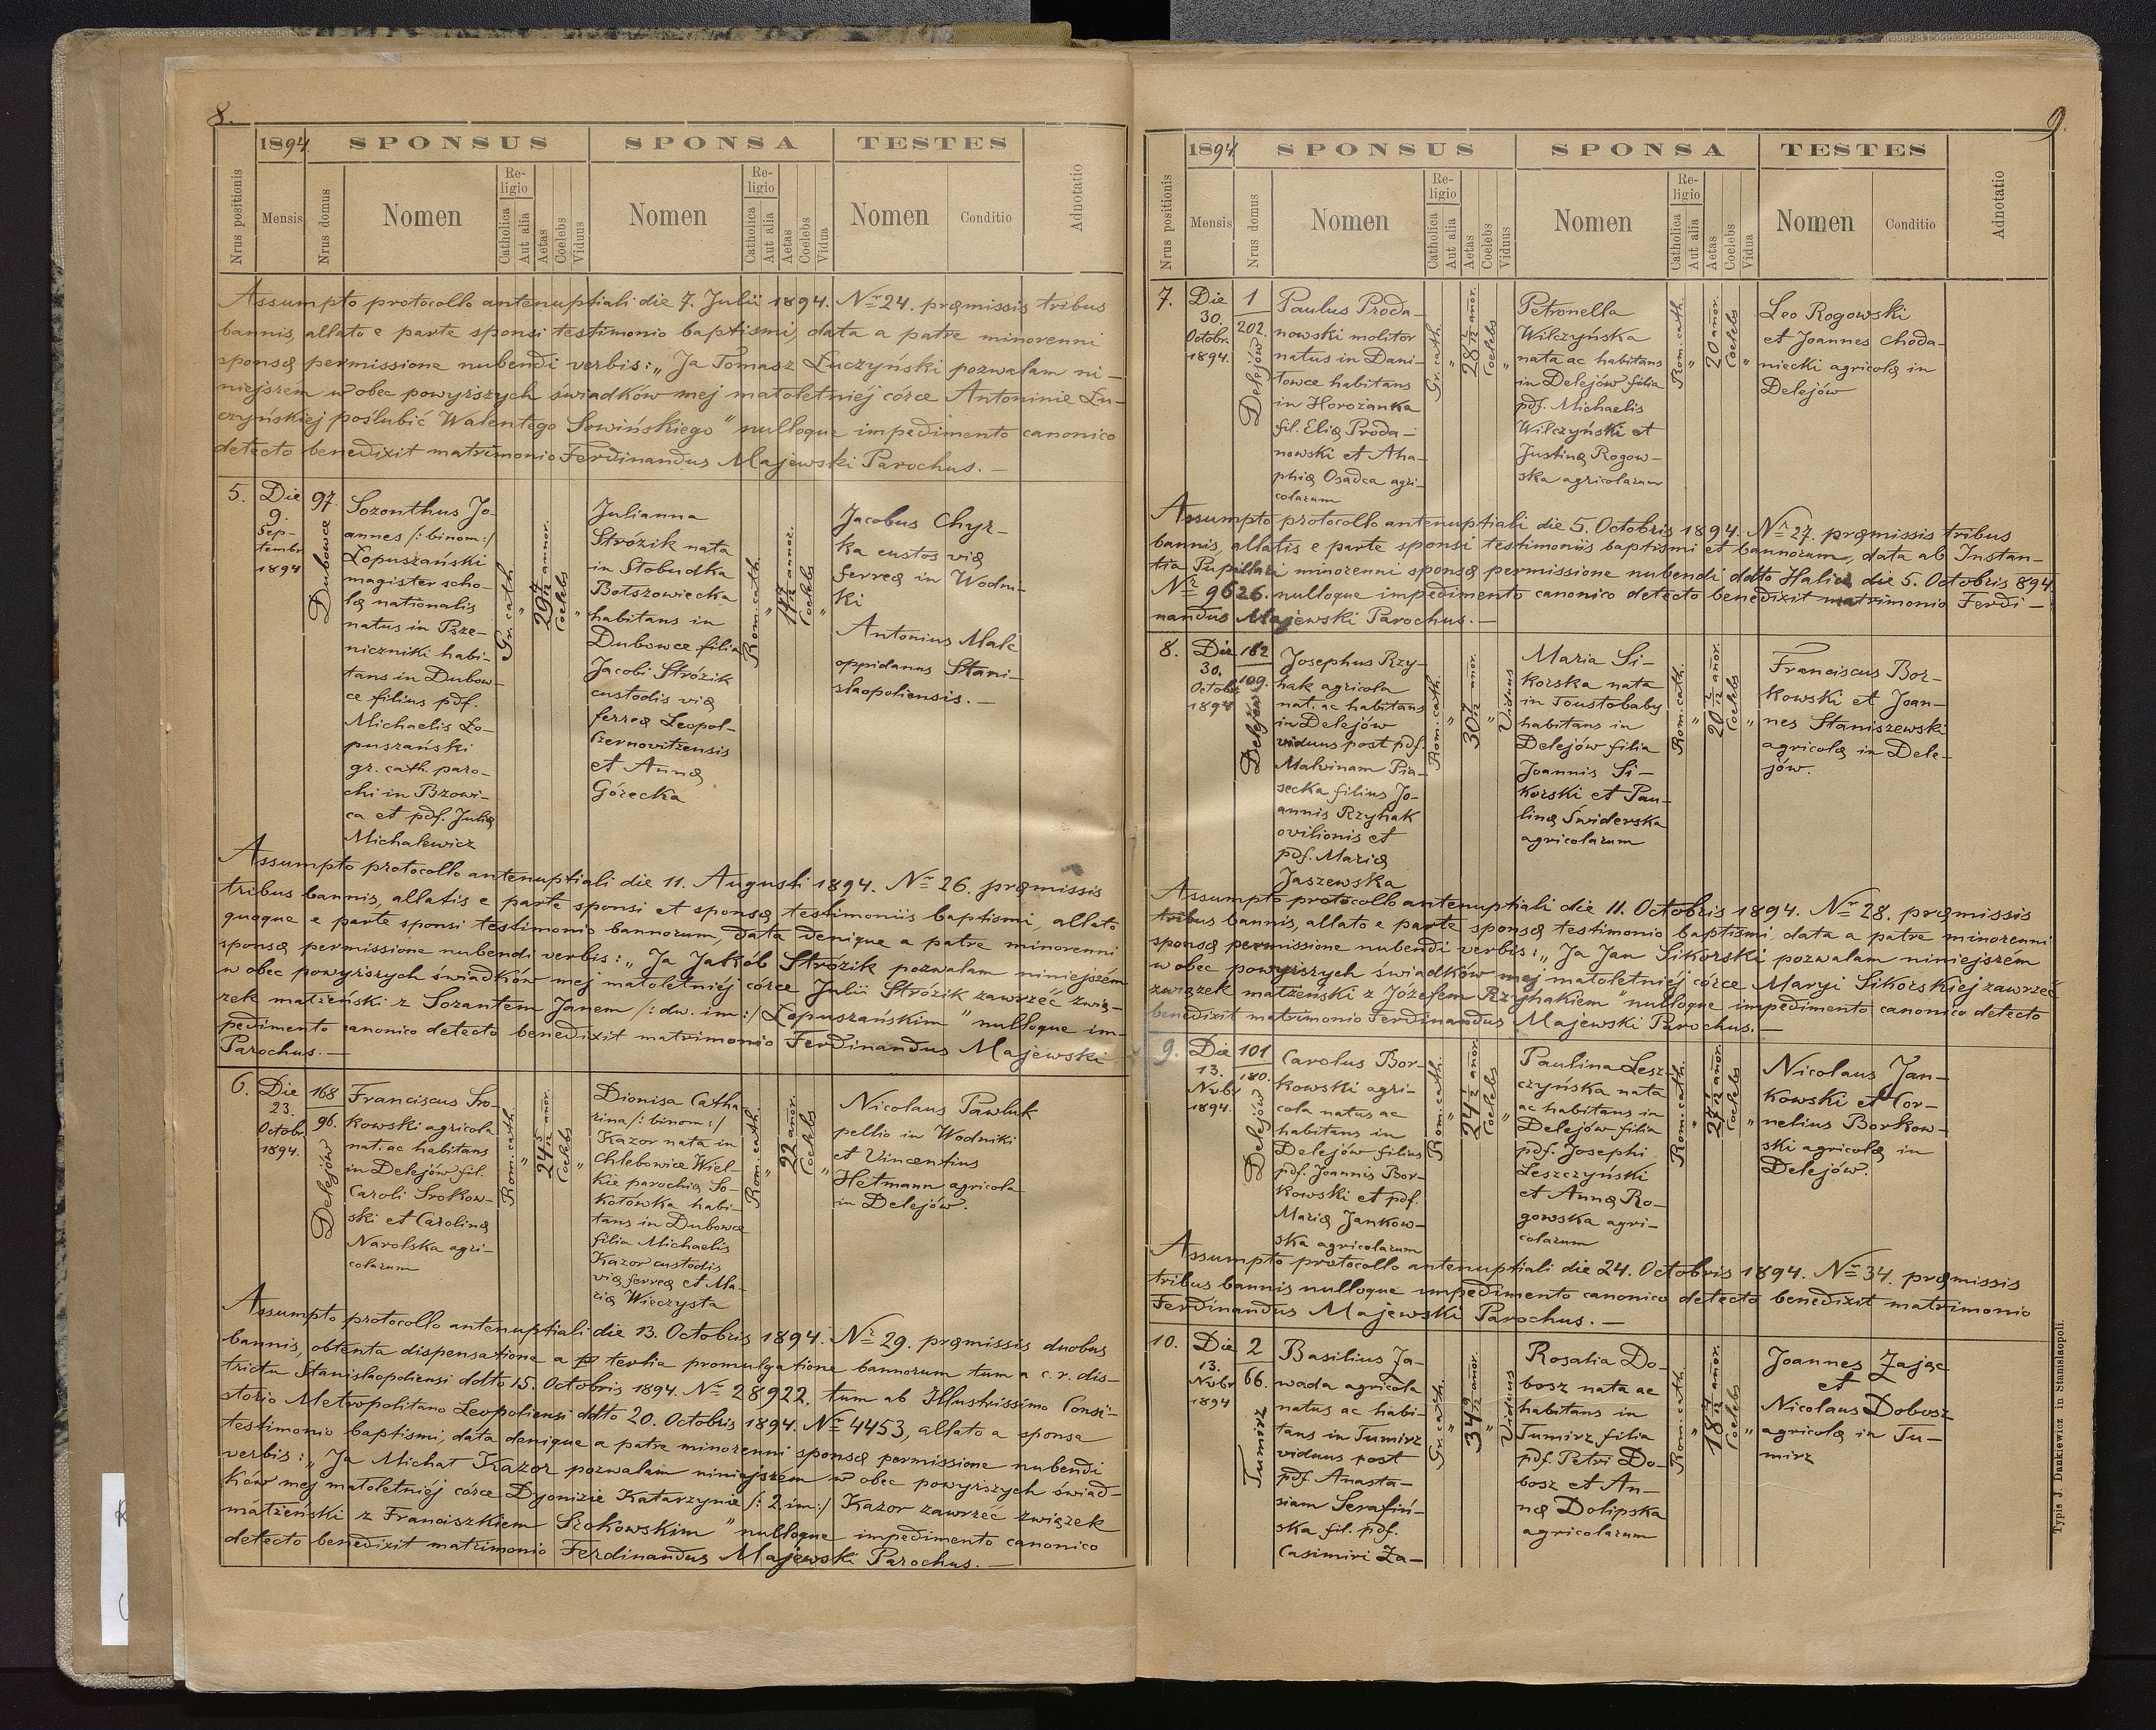 8.
1894
SPONSUS
SPONSA
TESTES
Nrus positionis
Mensis
Nrus domus
Nomen
Religio
Catholica
Aut alia
Aetas
Coelebs
Viduus
Nomen
Religio
Catholica
Aut alia
Aetas
Coelebs
Vidua
Nomen
Conditio
Adnotatio
Assumpto protocollo antenuptiali die 7. Julii 1894. Nr 24. præmissis tribus
bannis, allato e parte sponsi testimonio baptismi, data a patre minorenni
sponsæ permissione nubendi verbis: „Ja Tomasz Łuczyński pozwalam ni-
niejszem w obec powyższych świadków mej małoletniéj córce Antoninie Łu-
czyńskiej poślubić Walentego Sowińskiego" nulloque impedimento canonico
detecto benedixit matrimonio Ferdinandus Majewski Parochus.—
5.
Die
9.
Sep-
tembr
1894
97.
Dubowce
Sozonthus Jo-
annes /: binom:/
Łopuszański
magister scho-
læ nationalis
natus in Psze-
niczniki habi-
tans in Dubow-
ce filius pdf.
Michaelis Ło-
puszański
gr. cath. paro-
chi in Bzowi-
ca et pdf. Juliæ
Michalewicz
Gr. cath.
"
29 7/12 annor.
Coelebs
"
Julianna
Strózik nata
in Słobudka
Bołszowiecka
habitans in
Dubowce filia
Jacobi Strózik
custodis viæ
ferreæ Leopol-
Czernovitzensis
et Annæ
Górecka
Rom. cath.
"
Coelebs
"
Jacobus Chyr-
ka custos viæ
ferreæ in Wodni-
ki
Antonius Malc
oppidanus Stani-
slaopoliensis.—
Assumpto protocollo antenuptiali die 11. Augusti 1894. Nr 26. præmissis
tribus bannis, allatis e parte sponsi et sponsæ testimoniis baptismi, allato
quoque e parte sponsi testimonio bannorum, data denique a patre minorenni
sponsæ permissione nubendi verbis: „Ja Jakób Strózik pozwalam niniejszém
w obec powyższych świadków mej małoletniéj córce Julii Strózik zawrzéć zwią-
zek małżeński z Sozantem Janem /: dw. im:/ Łopuszańskim" nulloque im-
pedimento canonico detecto benedixit matrimonio Ferdinandus Majewski
Parochus.—
6.
Die
23.
Octobr
1894.
168
96.
Delejów
Franciscus Sro-
kowski agricola
nat. ac habitans
in Delejów fil.
Caroli Srokow-
ski et Carolinæ
Narolska agri-
colarum
Rom. cath.
"
24 5/12 anor.
Coelebs
"
Dionisa Catha
rina /: binom:/
Kazor nata in
Chlebowice Wiel
kie parochiæ So-
kołówka habi-
tans in Dubowce
filia Michaelis
Kazor custodis
viæ ferreæ et Ma-
riæ Wieczysta
Rom. cath.
"
22 anor.
Coelebs
"
Nicolaus Pawluk
pellio in Wodniki
et Vincentius
Hetmann agricola
in Delejów.
Assumpto protocollo antenuptiali die 13. Octobris 1894. Nr 29. præmissis duobus
bannis, obtenta dispensatione a tertia promulgatione bannorum tum a c. r. dis-
trictu Stanislaopoliensi ddto 15. Octobris 1894. Nr 28922. tum ab Illustrissimo Consi-
storio Metropolitano Leopoliensi ddto 20. Octobris 1894. Nr 4453, allato a sponsa
testimonio baptismi, data denique a patre minorenni sponsæ permissione nubendi
verbis: „Ja Michał Kazor pozwalam niniejszém w obec powyższych świad-
ków mej małoletniéj córce Dyonizie Katarzynie /: 2 im:/ Kazor zawrzéć związek
małżeński z Franciszkiem Srokowskim" nulloque impedimento canonico
detecto benedixit matrimonio Ferdinandus Majewski Parochus.—
9.
1894
SPONSUS
SPONSA
TESTES
Nrus positionis
Mensis
Nrus domus
Nomen
Religio
Catholica
Aut alia
Aetas
Coelebs
Viduus
Nomen
Religio
Catholica
Aut alia
Aetas
Coelebs
Vidua
Nomen
Conditio
Adnotatio
7.
Die
30.
Octobr.
1894.
1
202.
Delejów
Paulus Proda-
nowski molitor
natus in Dani-
łowce habitans
in Horożanka
fil. Eliæ Proda-
nowski et Aha-
phiæ Osadca agri-
colarum
Gr. cath.
"
Coelebs
"
Petronella
Wilczyńska
nata ac habitans
in Delejów filia
pdf. Michaelis
Wilczyński et
Justinæ Rogow-
ska agricolarum
Rom. cath.
"
20 anor.
Coelebs
"
Leo Rogowski
et Joannes Choda-
niecki agricolæ in
Delejów
Assumpto protocollo antenuptiali die 5. Octobris 1894. Nr 27. præmissis tribus
bannis, allatis e parte sponsi testimoniis baptismi et bannorum, data ab Instan-
tia Pupillari minorenni sponsæ permissione nubendi ddto Halicz die 5. Octobris 894
Nr 9626. nulloque impedimento canonico detecto benedixit matrimonio Ferdi-
nandus Majewski Parochus.—
8.
Die
30.
Octobr
1894
182
109.
Delejów
Josephus Rzy-
hak agricola
nat. ac habitans
in Delejów
viduus post pdf.
Malvinam Pia-
secka filius Jo-
annis Rzyhak
ovilionis et
pdf. Mariæ
Jaszewska
Rom. cath.
"
30 7/12 anor.
"
Viduus
Maria Si-
korska nata
in Toustobaby
habitans in
Delejów filia
Joannis Si-
korski et Pau-
linæ Świderska
agricolarum
Rom. cath.
"
20 2/12 anor.
Coelebs
"
Franciscus Bor-
kowski et Joan-
nes Staniszewski
agricolæ in Dele-
jów.
Assumpto protocollo antenuptiali die 11. Octobris 1894. Nr 28. præmissis
tribus bannis, allato e parte sponsæ testimonio baptismi, data a patre minorenni
sponsæ permissione nubendi verbis: „Ja Jan Sikorski pozwalam niniejszém
w obec powyższych świadków mej małoletniéj córce Maryi Sikorskiej zawrzeć
związek małżeński z Józefem Rzyhakiem" nulloque impedimento canonico detecto
benedixit matrimonio Ferdinandus Majewski Parochus.—
9.
Die
13.
Nvbr
1894.
101
180.
Delejów
Carolus Bor-
kowski agri-
cola natus ac
habitans in
Delejów filius
pdf. Joannis Bor-
kowski et pdf.
Mariæ Jankow-
ska agricolarum
Rom. cath.
"
24 1/12 anor.
Coelebs
"
Paulina Lesz-
czyńska nata
ac habitans in
Delejów filia
pdf. Josephi
Leszczyński
et Annæ Ro-
gowska agri-
colarum
Rom. cath.
"
27 1/12 anor.
Coelebs
"
Nicolaus Jan-
kowski et Cor-
nelius Borkow-
ski agricolæ in
Delejów.
Assumpto protocollo antenuptiali die 24. Octobris 1894. Nr 34. præmissis
tribus bannis nulloque impedimento canonico detecto benedixit matrimonio
Ferdinandus Majewski Parochus.—
10.
Die
13.
Nvbr
1894
2
66.
Tumirz
Basilius Ja-
wada agricola
natus ac habi-
tans in Tumirz
viduus post
pdf. Anasta-
siam Serafiń-
ska fil. pdf.
Casimiri Za-
Gr. cath.
"
34 9/12 anor.
"
Viduus
Rosalia Do-
bosz nata ac
habitans in
Tumirz filia
pdf. Petri Do-
bosz et An-
næ Dolipska
agricolarum
Rom. cath.
"
Coelebs
"
Joannes Zając
et
Nicolaus Dobosz
agricolæ in Tu-
mirz
Typis J. Dankiewicz in Stanislaopoli.